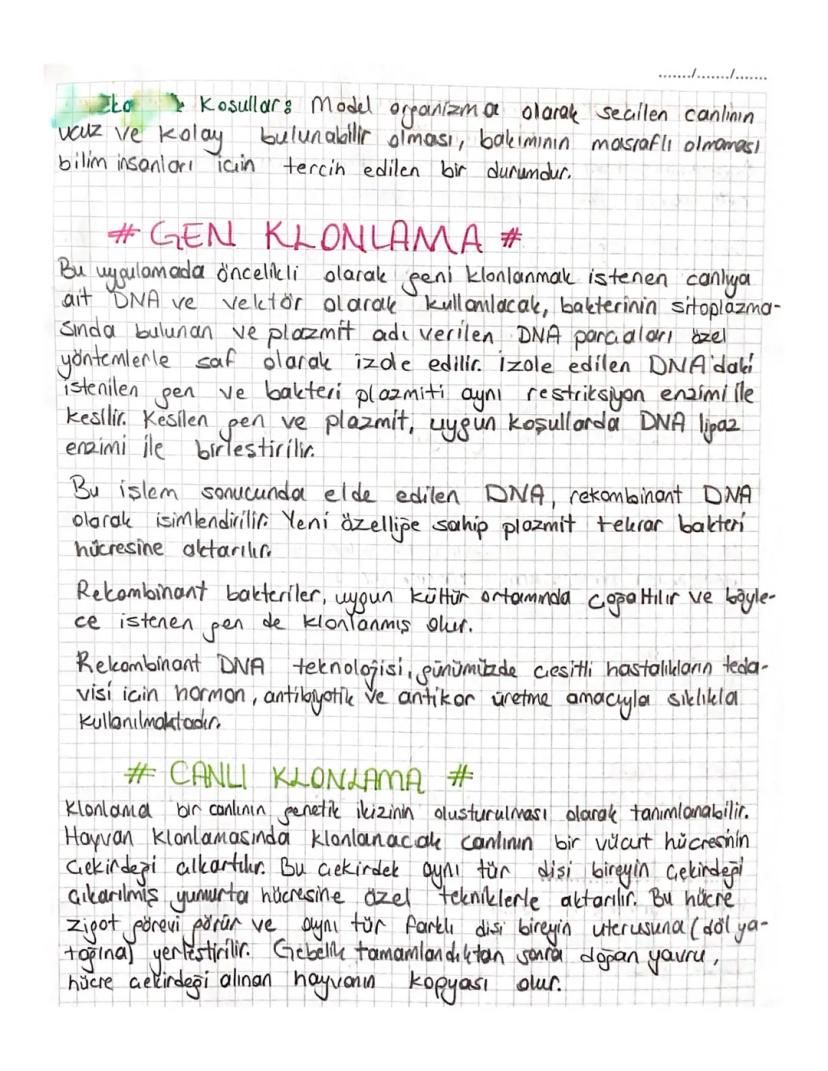 ......./......./.......
Eko Koşullar: Model organizma olarak seçilen canlının
ucuz ve kolay bulunabilir olması, bakımının masraflı olmaması
bilim insanları için tercih edilen bir durumdur.
# GEN KLONLAMA #
Bu uygulamada öncelikli olarak geni klonlanmak istenen canlıya
ait DNA ve vektör olarak kullanılacak, bakterinin sitoplazma-
sında bulunan ve plazmit adı verilen DNA parçaları özel
yöntemlerle saf olarak izole edilir. İzole edilen DNA'daki
istenilen gen ve bakteri plazmiti aynı restriksiyon enzimi ile
kesilir. Kesilen gen ve plazmit, uygun koşullarda DNA ligaz
enzimi ile birleştirilir.
Bu işlem sonucunda elde edilen DNA, rekombinant DNA
olarak isimlendirilir. Yeni özelliğe sahip plazmit tekrar bakteri
hücresine aktarılır.
Rekombinant bakteriler, uygun kültür ortamında çoğaltılır ve böyle-
ce istenen gen de klonlanmış olur.
Rekombinant DNA teknolojisi, günümüzde çeşitli hastalıkların teda-
visi için hormon, antibiyotik ve antikor üretme amacıyla sıklıkla
kullanılmaktadır.
# CANLI KLONLAMA #
Klonlama bir canlının genetik ikizinin oluşturulması olarak tanımlanabilir.
Hayvan klonlamasında klonlanacak canlının bir vücut hücresinin
çekirdeği çıkartılır. Bu çekirdek aynı tür dişi bireyin çekirdeği
çıkarılmış yumurta hücresine özel tekniklerle aktarılır. Bu hücre
zigot görevi görür ve aynı tür farklı dişi bireyin uterusuna (döl ya-
tağına) yerleştirilir. Gebelik tamamlandıktan sonra doğan yavru,
hücre çekirdeği alınan hayvanın kopyası olur.